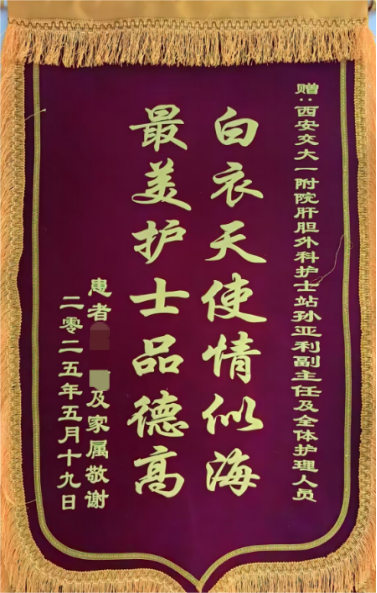 赠:西安交大一附院肝胆外科护士站孙亚利副主任及全体护理人员
白衣天使情似海
最美护士品德高
患者 及家属敬谢
二零二五年五月十九日